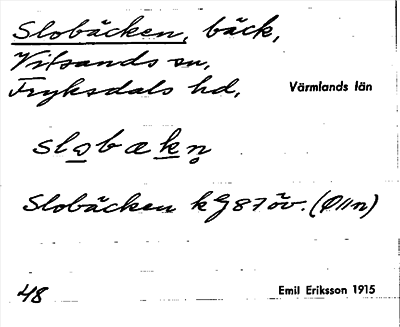 Slobäcken, bäck,
Vitsands sn,
Fryksdals hd,
Värmlands län
slobækn
Slobäcken kG87öv. (Ø11n)
48
Emil Eriksson 1915